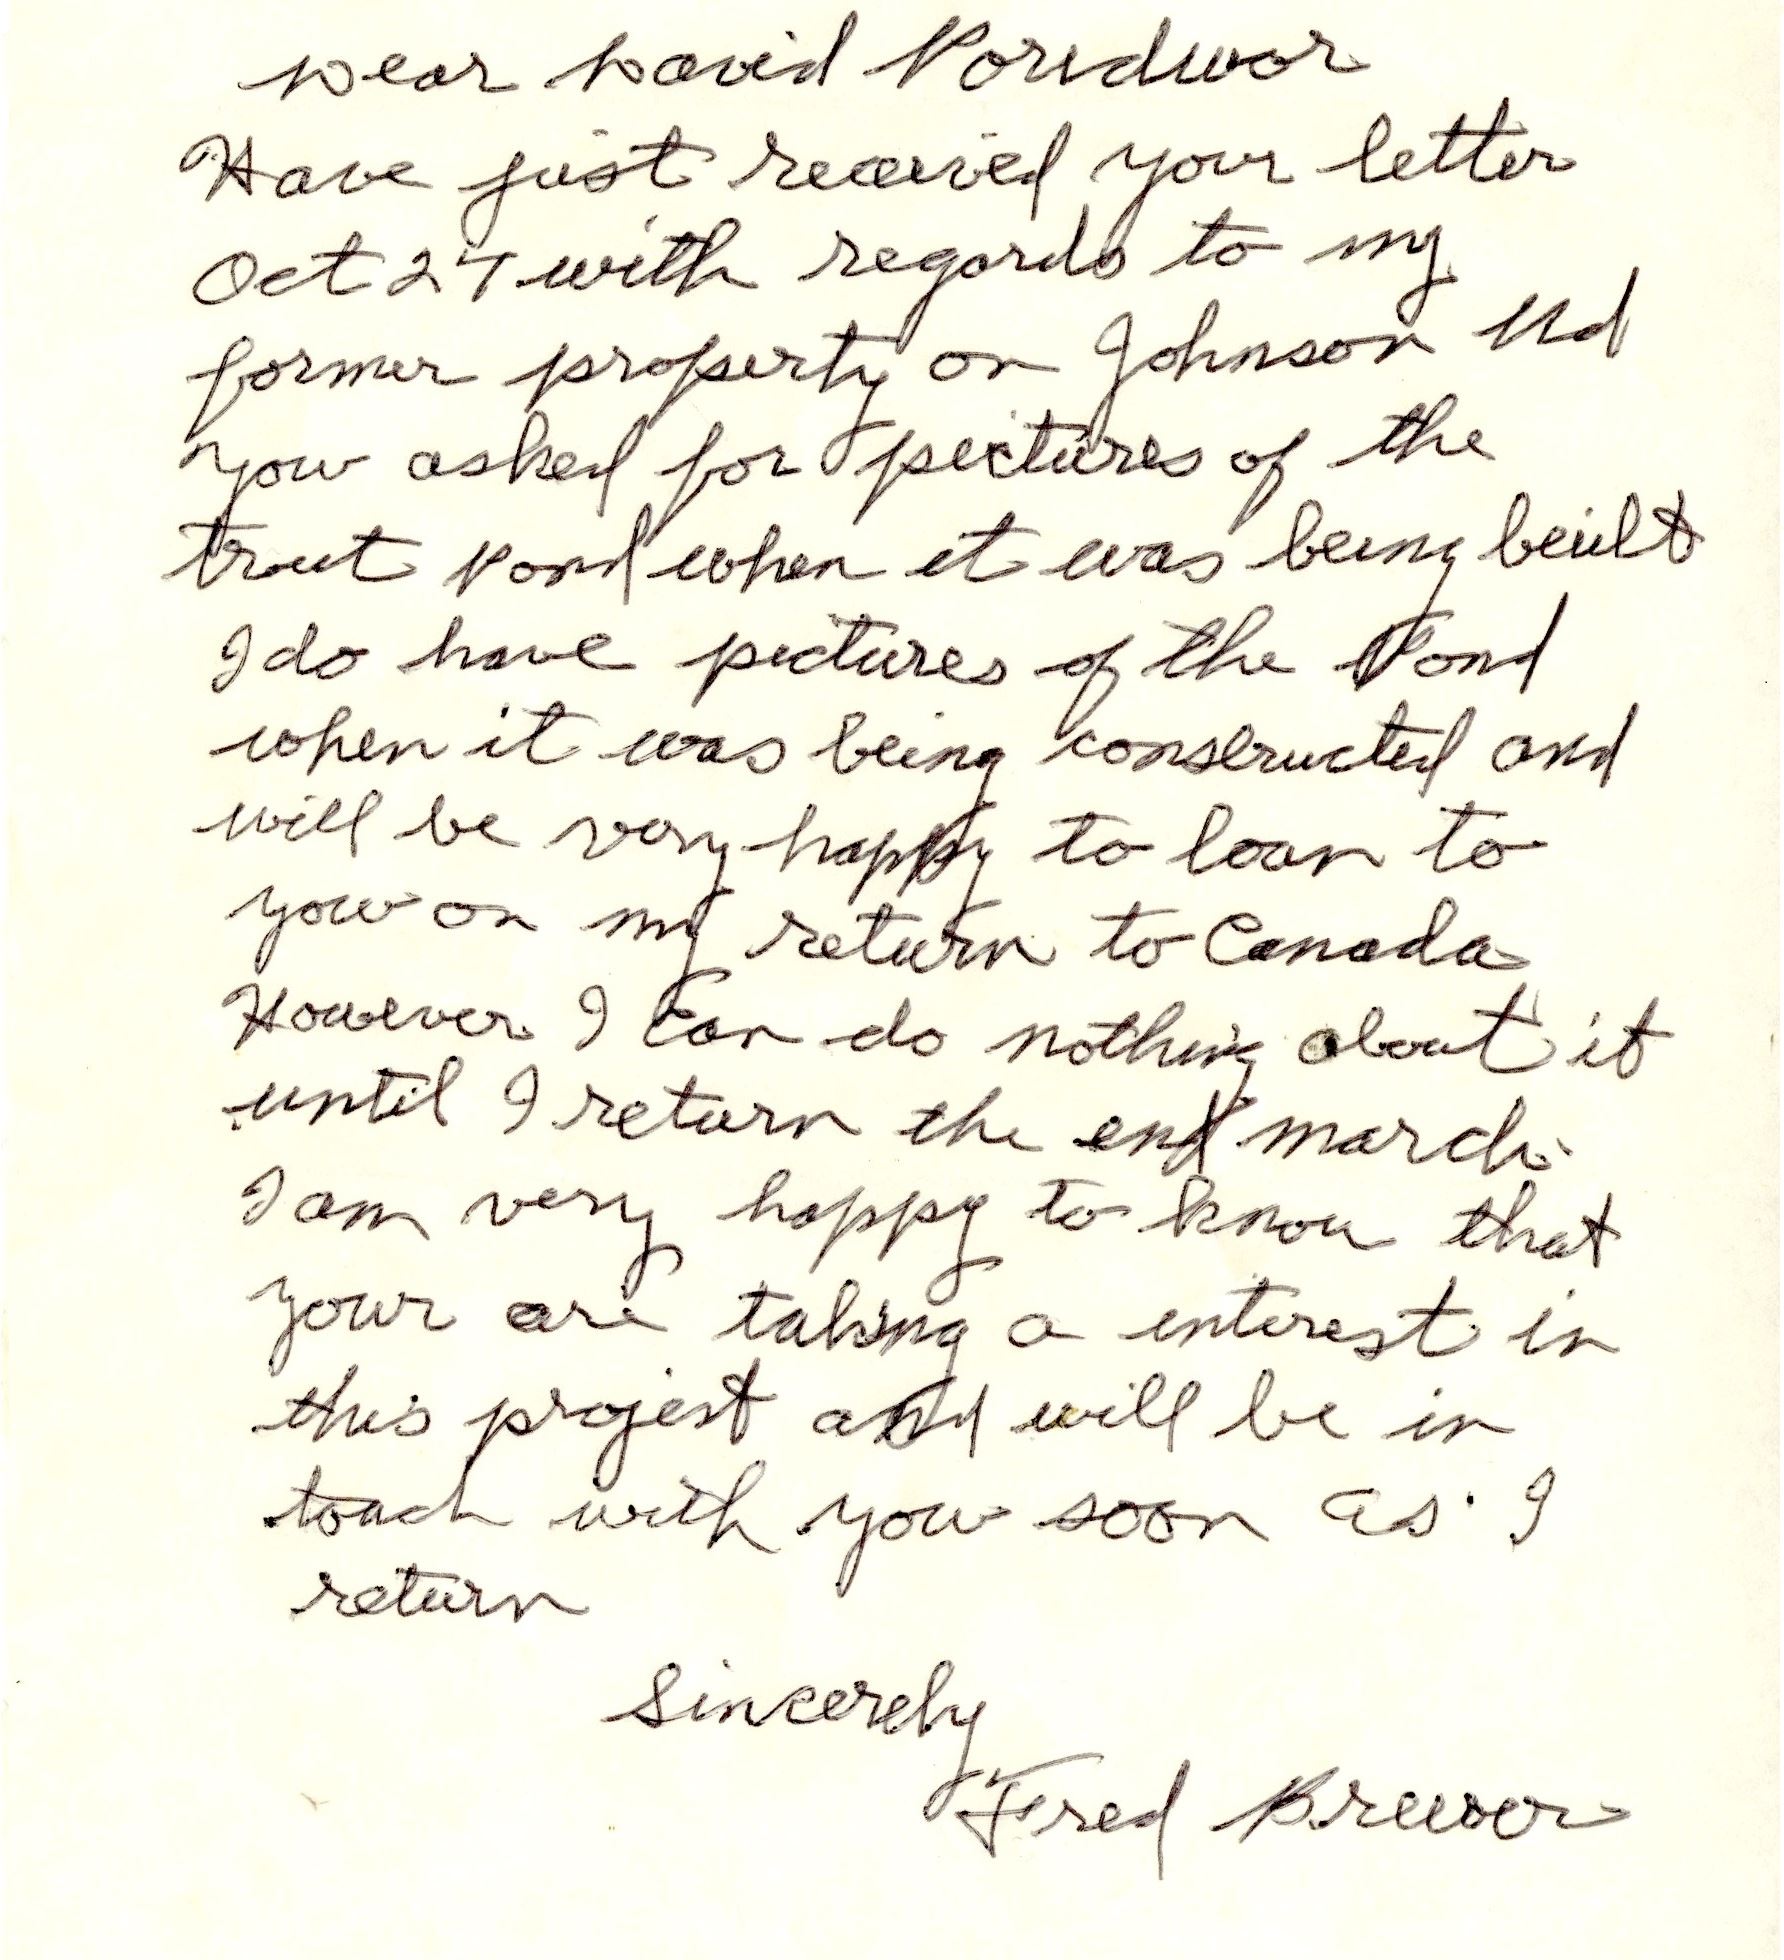 Dear David
Have just received your letter
Oct 27 with regards to my
former property on Johnson Rd
you asked for pictures of the
trout Pond when it was being built
I do have pictures of the Pond
when it was being constructed and
will be very happy to loan to
you on my return to Canada
However I can do nothing about it
until I return the end march.
I am very happy to know that
your are taking a interest in
this project and will be in
touch with you soon as I
return
Sincerely
Fred Brewer